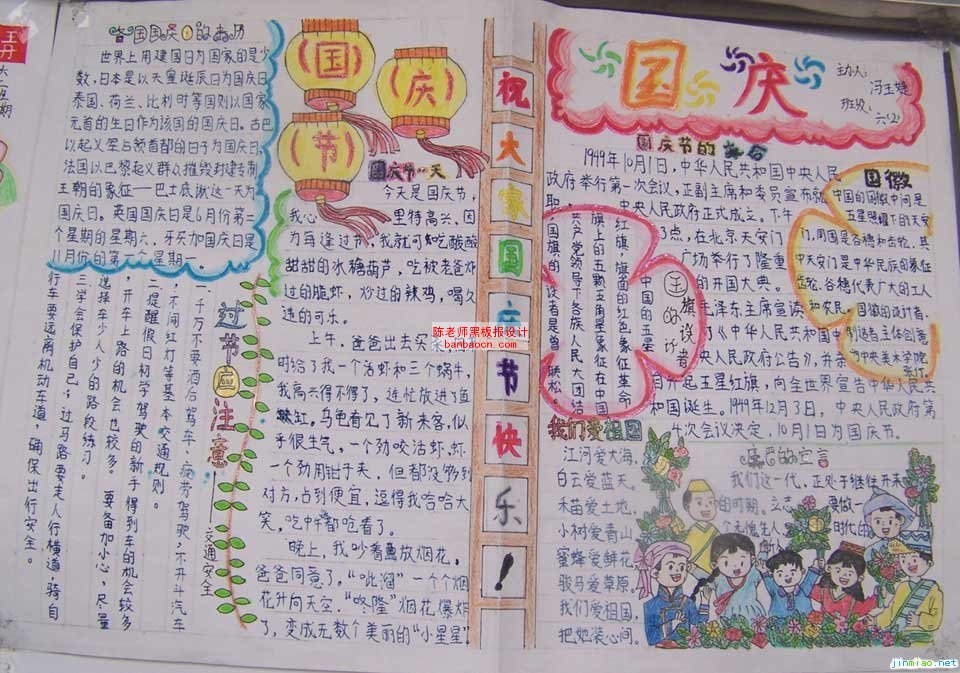 王丹
各国国庆日的来历
世界上用建国日为国家的是少
数,日本是以天皇诞辰日为国庆日
泰国、荷兰、比利时等国则以国家
元首的生日作为该国的国庆日。古巴
以起义军占领首都的日子为国庆日
法国以巴黎起义群众摧毁封建制
王朝的象征——巴士底狱这一天为
国庆日。英国国庆日是6月份第二
个星期的星期六,牙买加国庆日是
星期一。
国
庆
节
国庆节一天
今天是国庆节,
我心里特高兴、因
为每逢过节,我就可吃酸酸
甜甜的冰糖葫芦,吃被老爸炸
过的脆虾,炒过的辣鸡,喝久
违的可乐。
上午,爸爸出去买菜
时给了我一个活虾和三个蜗牛,
我高兴得不得了,连忙放进了鱼
缸。乌龟看见了新来客,似
乎很生气,一个劲咬活虾,虾
一个劲用钳子夹,但都没够到
对方,占到便宜,逗得我哈哈大
笑,吃中午都呛着了。
晚上,我吵着要放烟花,
爸爸同意了。“呲溜”一个个烟
花升向天空,“咚隆”烟花爆炸
了,变成无数个美丽的“小星星”
过节应注意
交通安全
一千万不要酒后驾车、疲劳驾驶,不开斗汽车
,不闯红灯等基本交通规则。
二提醒假日初学驾驶的新手得到车的机会较多
,开车上路的机会也较多。要备加小心,尽量
选择车少人少的路段练习。
三学会保护自己,过马路要走人行横道,骑自
行车要远离机动车道,确保出行安全。
祝大家国庆节快乐!
陈老师黑板报设计
banbaocn.com
国庆
主办人:
班级:六(2)
国庆节的
1949年10月1日,中华人民共和国中央人民
政府举行第一次会议,正副主席和委员宣布就
职,中央人民政府正式成立。下午
3点,在北京天安门
广场举行了隆重
的开国大典。
毛泽东主席宣读
了《中华人民共和国中
央人民政府公告》,并亲
自升起五星红旗,向全世界宣告中华人民共
和国诞生。1949年12月3日,中央人民政府第
4次会议决定,10月1日为国庆节。
国旗的设计者
中国的五星
红旗,旗面的红色象征革命,
旗上的五颗五角星象征在中国
共产党领导下各族人民大团结
国旗的设计者是曾联松。
国徽
中国的国徽中间是
五星照耀下的天安
门,周围是谷穗和齿轮,其
中天安门是中华民族的象征
齿轮、谷穗代表广大的工人
和农民。国徽的设计者、
创造者主体创意
为中央美术学院
张仃。
我们爱祖国
江河爱大海,
白云爱蓝天。
禾苗爱土地,
小树爱青山
蜜蜂爱鲜花,
骏马爱草原,
我们爱祖国,
把她装心间。
的宣言
我们这一代,正处于继往开来
的时期。立志要做一
个无愧
时代的
jinmiao.net